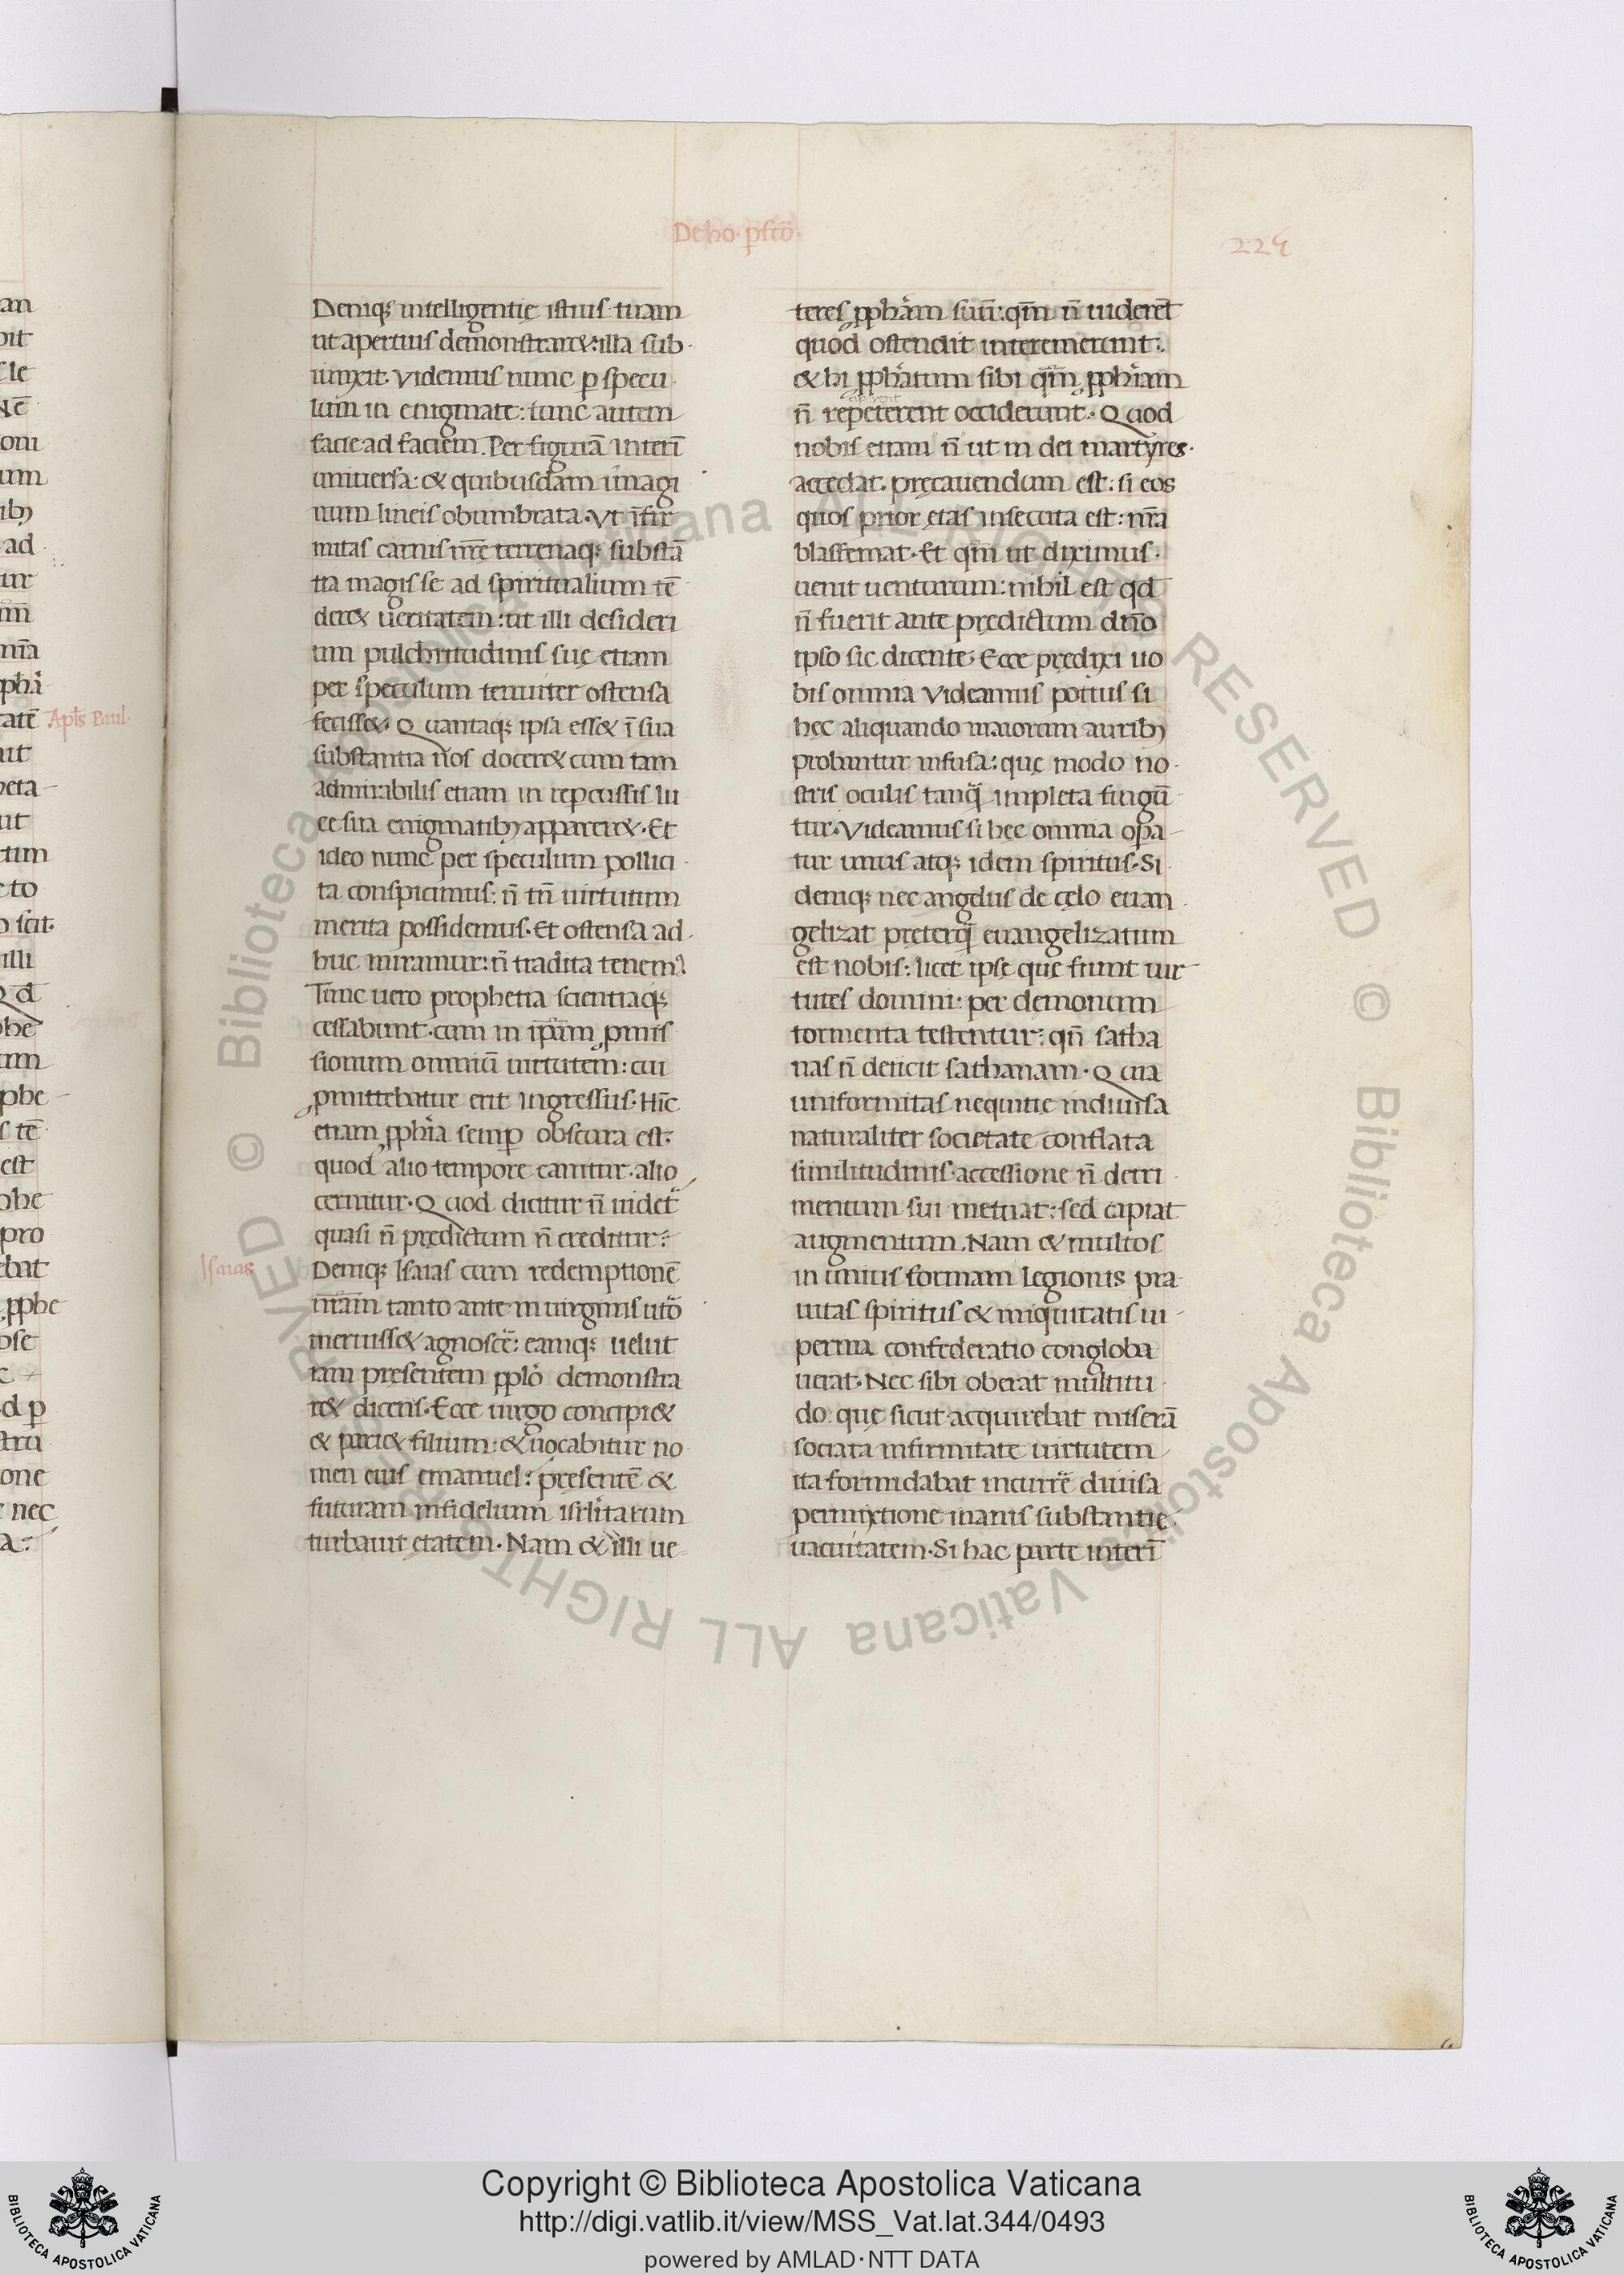 De ho· ꝑfcō·
224
Deniq; intelligentię istius· uiam
ut apertius demonstrar&: illa sub-
iunxit. Videmus nunc ꝑ specu-
lum in enigmate: tunc autem
facie ad faciem. Per figurā interī
uniuersa: & quibusdam imagi
num lineis obumbrata. Vt īfir
mitas carnis nr̄e terrenaq; substā
tia magis se ad spiritualium tē
der& ueritatem: ut illi desideri
um pulchritudinis suę etiam
per speculum tenuiter ostensa
feciss&. Quantaq; ipsa ess& ī sua
substantia nos docer& cum tam
admirabilis etiam in repcussis lu
ce sua enigmatibꝫ apparer&. Et
ideo nunc per speculum pollici-
ta conspicimus: n̄ tn̄ uirtutum
merita possidemus. Et ostensa ad-
huc miramur: n̄ tradita tenem᾽.
Tunc uero prophetia scientiaq;
cessabunt. cum in ip̄am ꝓmis
sionum omniū uirtutem: cui
ꝓmittebatur erit ingressus. Hīc
etiam ꝓph̄ia semꝑ obscura est:
quod alio tempore canitur. alio
cernitur. Quod dicitur n̄ uidet᷑
quasi n̄ prędictum n̄ creditur:
Isaias
Deniq; Isaias cum redemptionē
nr̄am tanto ante in uirginis utō
meruiss& agnoscē: eamq; uelut
iam pręsentem pplō demonstra
r& dicens. Ecce uirgo concipi&
& pari& filium: & uocabitur no-
men eius emanuel: pręsentē &
futuram infidelium isrlitarum
turbauit ętatem. Nam & illi ue-
teres ꝓph̄am suū: qm̄ n̄ uiderēt
quod ostendit interemerunt:
& hi ꝓph̄atum sibi qm̄ ꝓph̄iam
n̄ repeterent occiderunt. Quod
nobis etiam n̄ ut in dei martyres·
accedat. pręcauendum est: si eos
quos prior ętas insecuta est: nr̄a
blasfemat. Et qm̄ ut diximus.
uenit uenturum: nihil est qd̄
n̄ fuerit ante prędictum dn̄o
ipso sic dicente. Ecce prędixi uo
bis omnia Videamus potius si
hęc aliquando maiorum auribꝫ
probuntur infusa: quę modo no-
stris oculis tanq̄ impleta fingū
tur. Videamus si hęc omnia opa-
tur unus atq; idem spiritus. Si
deniq; nec angelus de cęlo euan-
gelizat pręterq̄ euangelizatum
est nobis: licet ipse que fiunt uir-
tutes domini: per demonum
tormenta testentur: qn̄ satha
nas n̄ deiicit sathanam. Quia
uniformitas nequitię indiuisa
naturaliter societate conflata
similitudinis accessione n̄ detri-
mentum sui metuat: sed capiat
augmentum. Nam & multos
in unius formam legionis pra-
uitas spiritus & iniquitatis ui-
perina confederatio congloba
uerat. Nec sibi oberat multitu-
do quę sicut acquirebat miserā
sociata infirmitate uirtutem
ita formidabat incurrē diuisa
permixtione inanis substantię
uacuitatem. Si hac parte interī
an
bit
Apl̄s Paul·
Copyright © Biblioteca Apostolica Vaticana
http://digi.vatlib.it/view/MSS_Vat.lat.344/0493
powered by AMLAD·NTT DATA
BIBLIOTECA APOSTOLICA VATICANA
BIBLIOTECA APOSTOLICA VATICANA
© Biblioteca Apostolica Vaticana ALL RIGHTS RESERVED © Biblioteca Apostolica Vaticana ALL RIGHTS RESERVED